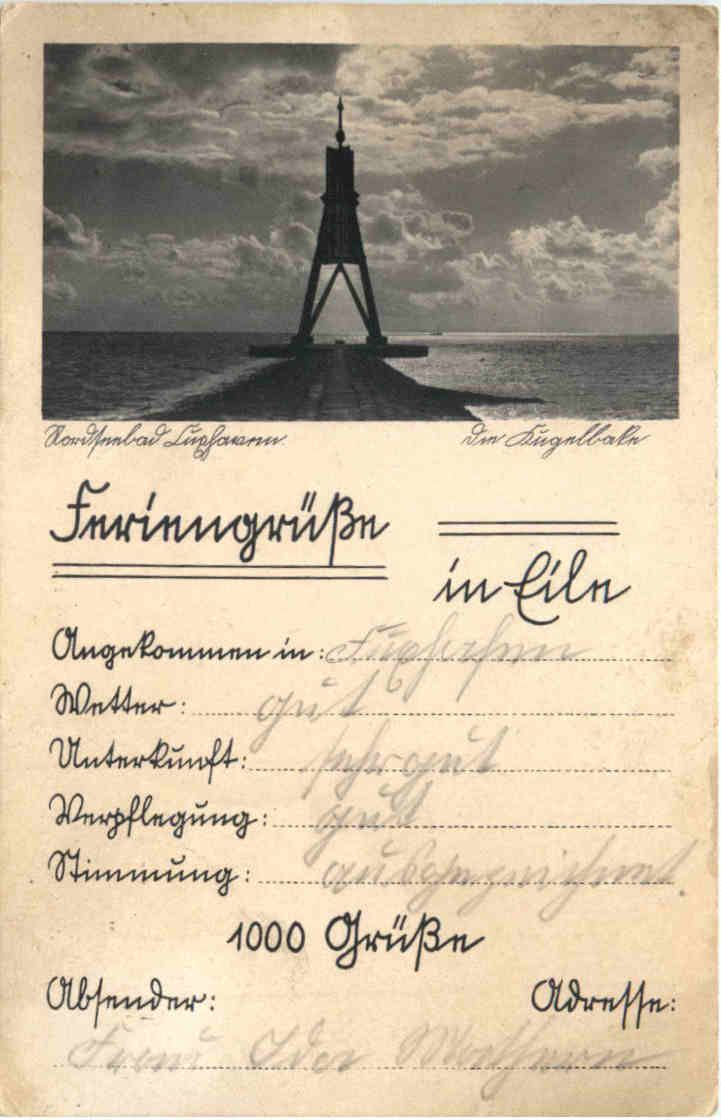 Nordseebad Cuxhaven. Die Kugelbake
Feriengrüße
in Eile
Angekommen in: Cuxhafen
Wetter: gut
Unterkunft: sehr gut
Verpflegung: gut
Stimmung: ausgezeichnet.
1000 Grüße
Absender: Adresse:
Frau Ida